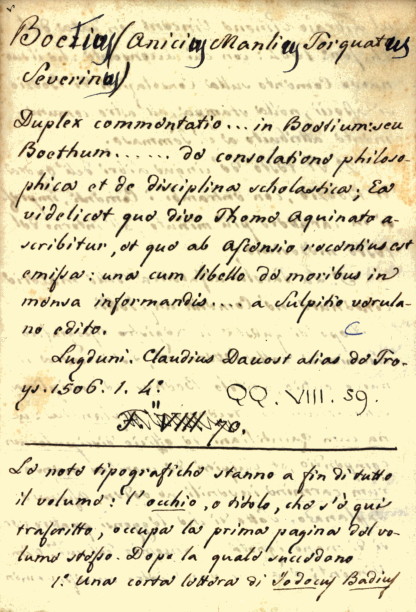 Boetius (Anicius Manlius Torquatus
Severinus)
Duplex commentatio ... in Boetium: seu
Boethum ...... de consolatione philoso-
phica et de disciplina scholastica; Ea
videlicet que divo Thome Aquinato a-
scribitur, et que ab Ascensio recentius est
emissa: una cum libello de moribus in
mensa informandis .... a Sulpitio verula-
no edito.
C
Lugduni. Claudius Davost alias de Tro-
ys. 1506. 1. 4.º
QQ. VIII. 59.
70.
Le note tipografiche stanno a fin di tutto
il volume: l'occhio, o titolo, che s'è qui
trascritto, occupa la prima pagina del vo-
lume stesso. Dopo la quale succedono
1.º Una corta lettera di Jodocus Badius